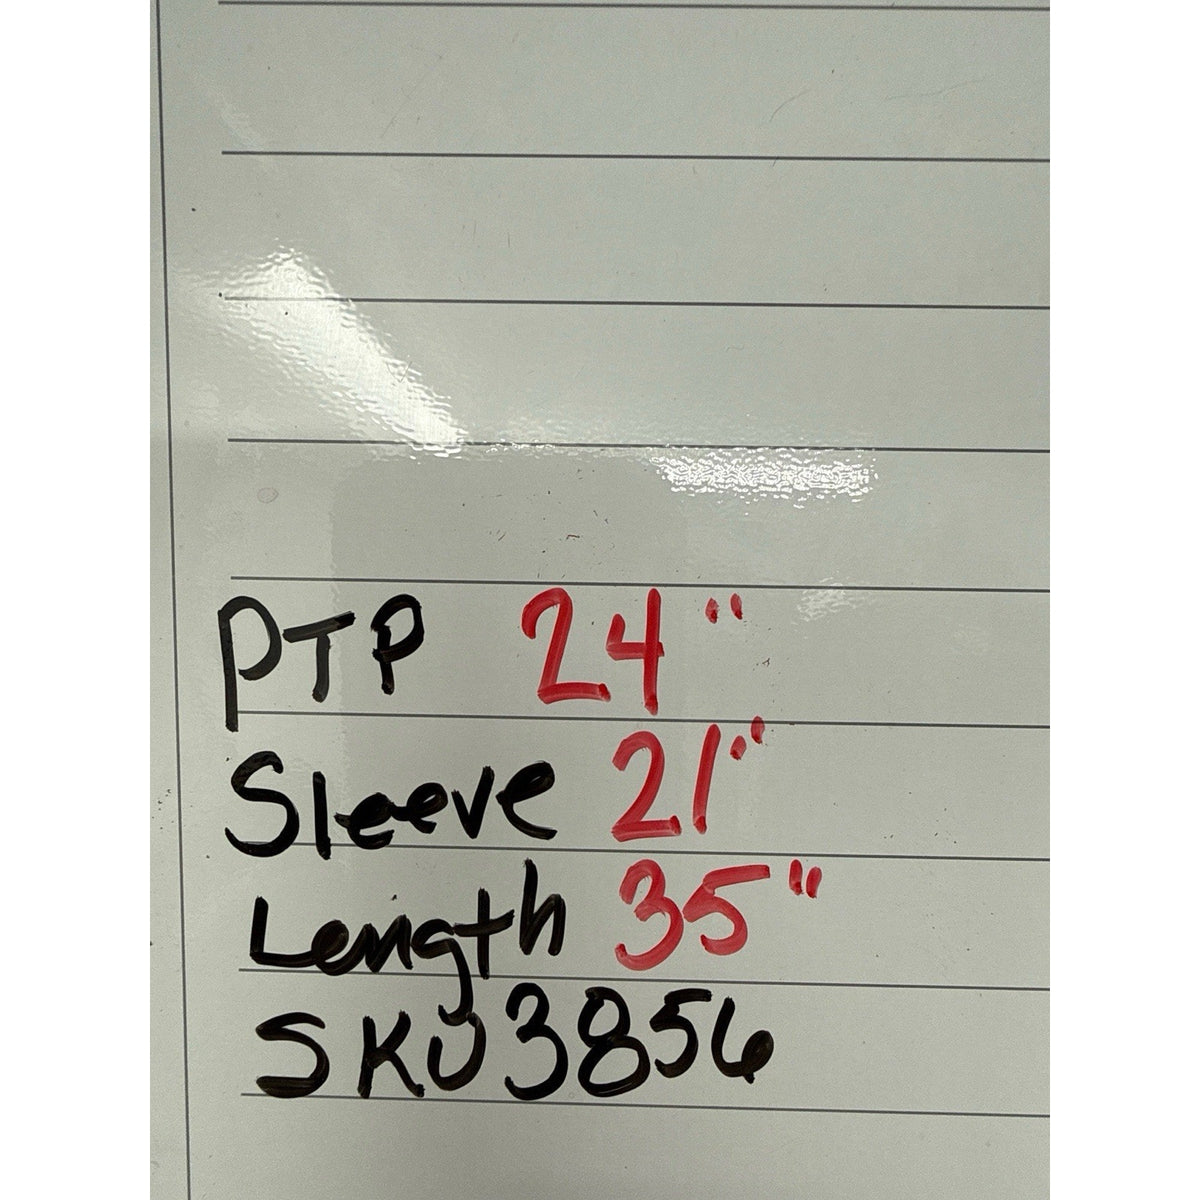 PTP 24"
Sleeve 21"
Length 35"
SKU 3856